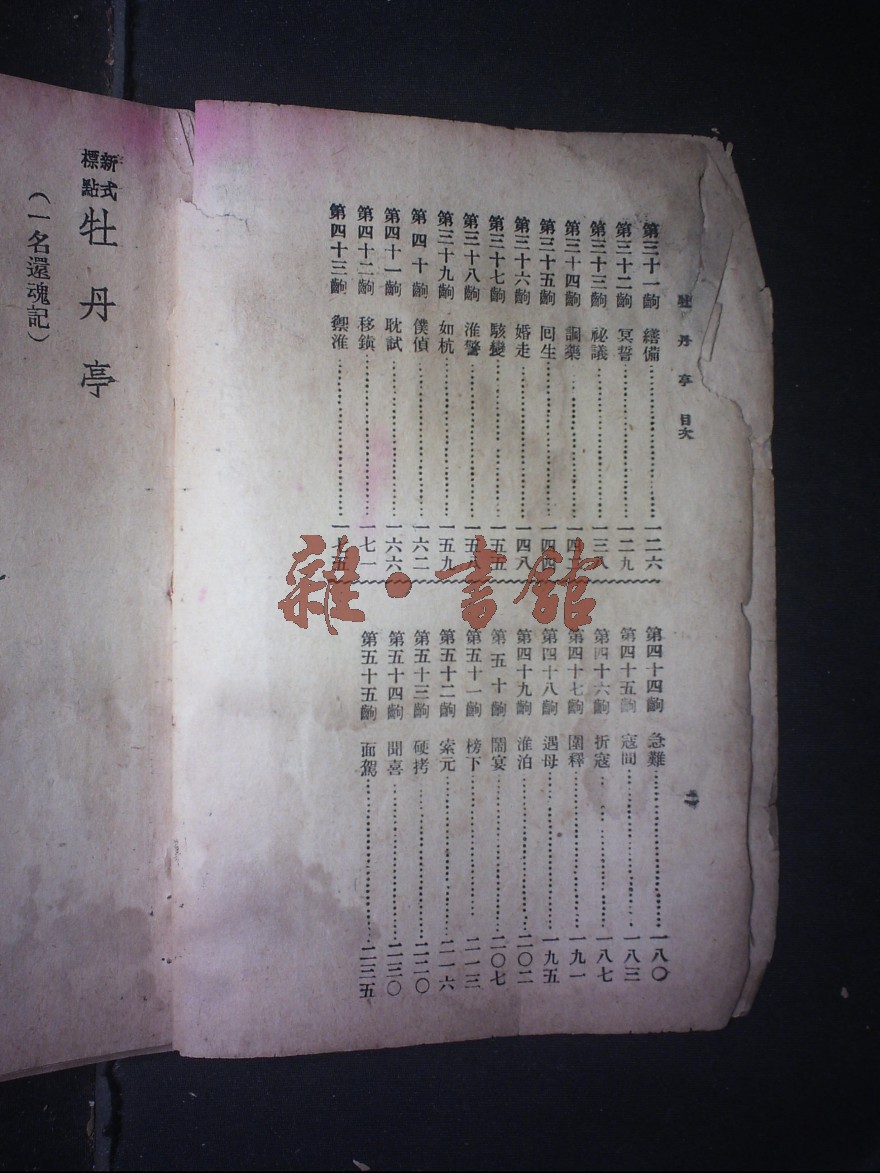 牡丹亭 目次
第三十一齣 繕備 一二六
第三十二齣 冥誓 一二九
第三十三齣 祕議 一三八
第三十四齣 詷藥
第三十五齣 回生 一四四
第三十六齣 婚走 一四八
第三十七齣 駭變 一五五
第三十八齣 淮警 一五八
第三十九齣 如杭 一五九
第四十齣 僕偵 一六二
第四十一齣 耽試 一六六
第四十二齣 移鎮 一七一
第四十三齣 禦淮 一七五
第四十四齣 急難 一八〇
第四十五齣 寇間 一八三
第四十六齣 折寇 一八七
第四十七齣 圍釋 一九一
第四十八齣 遇母 一九五
第四十九齣 淮泊 二〇二
第五十齣 鬧宴 二〇七
第五十一齣 榜下 二一三
第五十二齣 索元 二一六
第五十三齣 硬拷 二二〇
第五十四齣 聞喜 二三〇
第五十五齣 面駕 二三五
二
新式標點 牡丹亭
(一名還魂記)
雜·書館